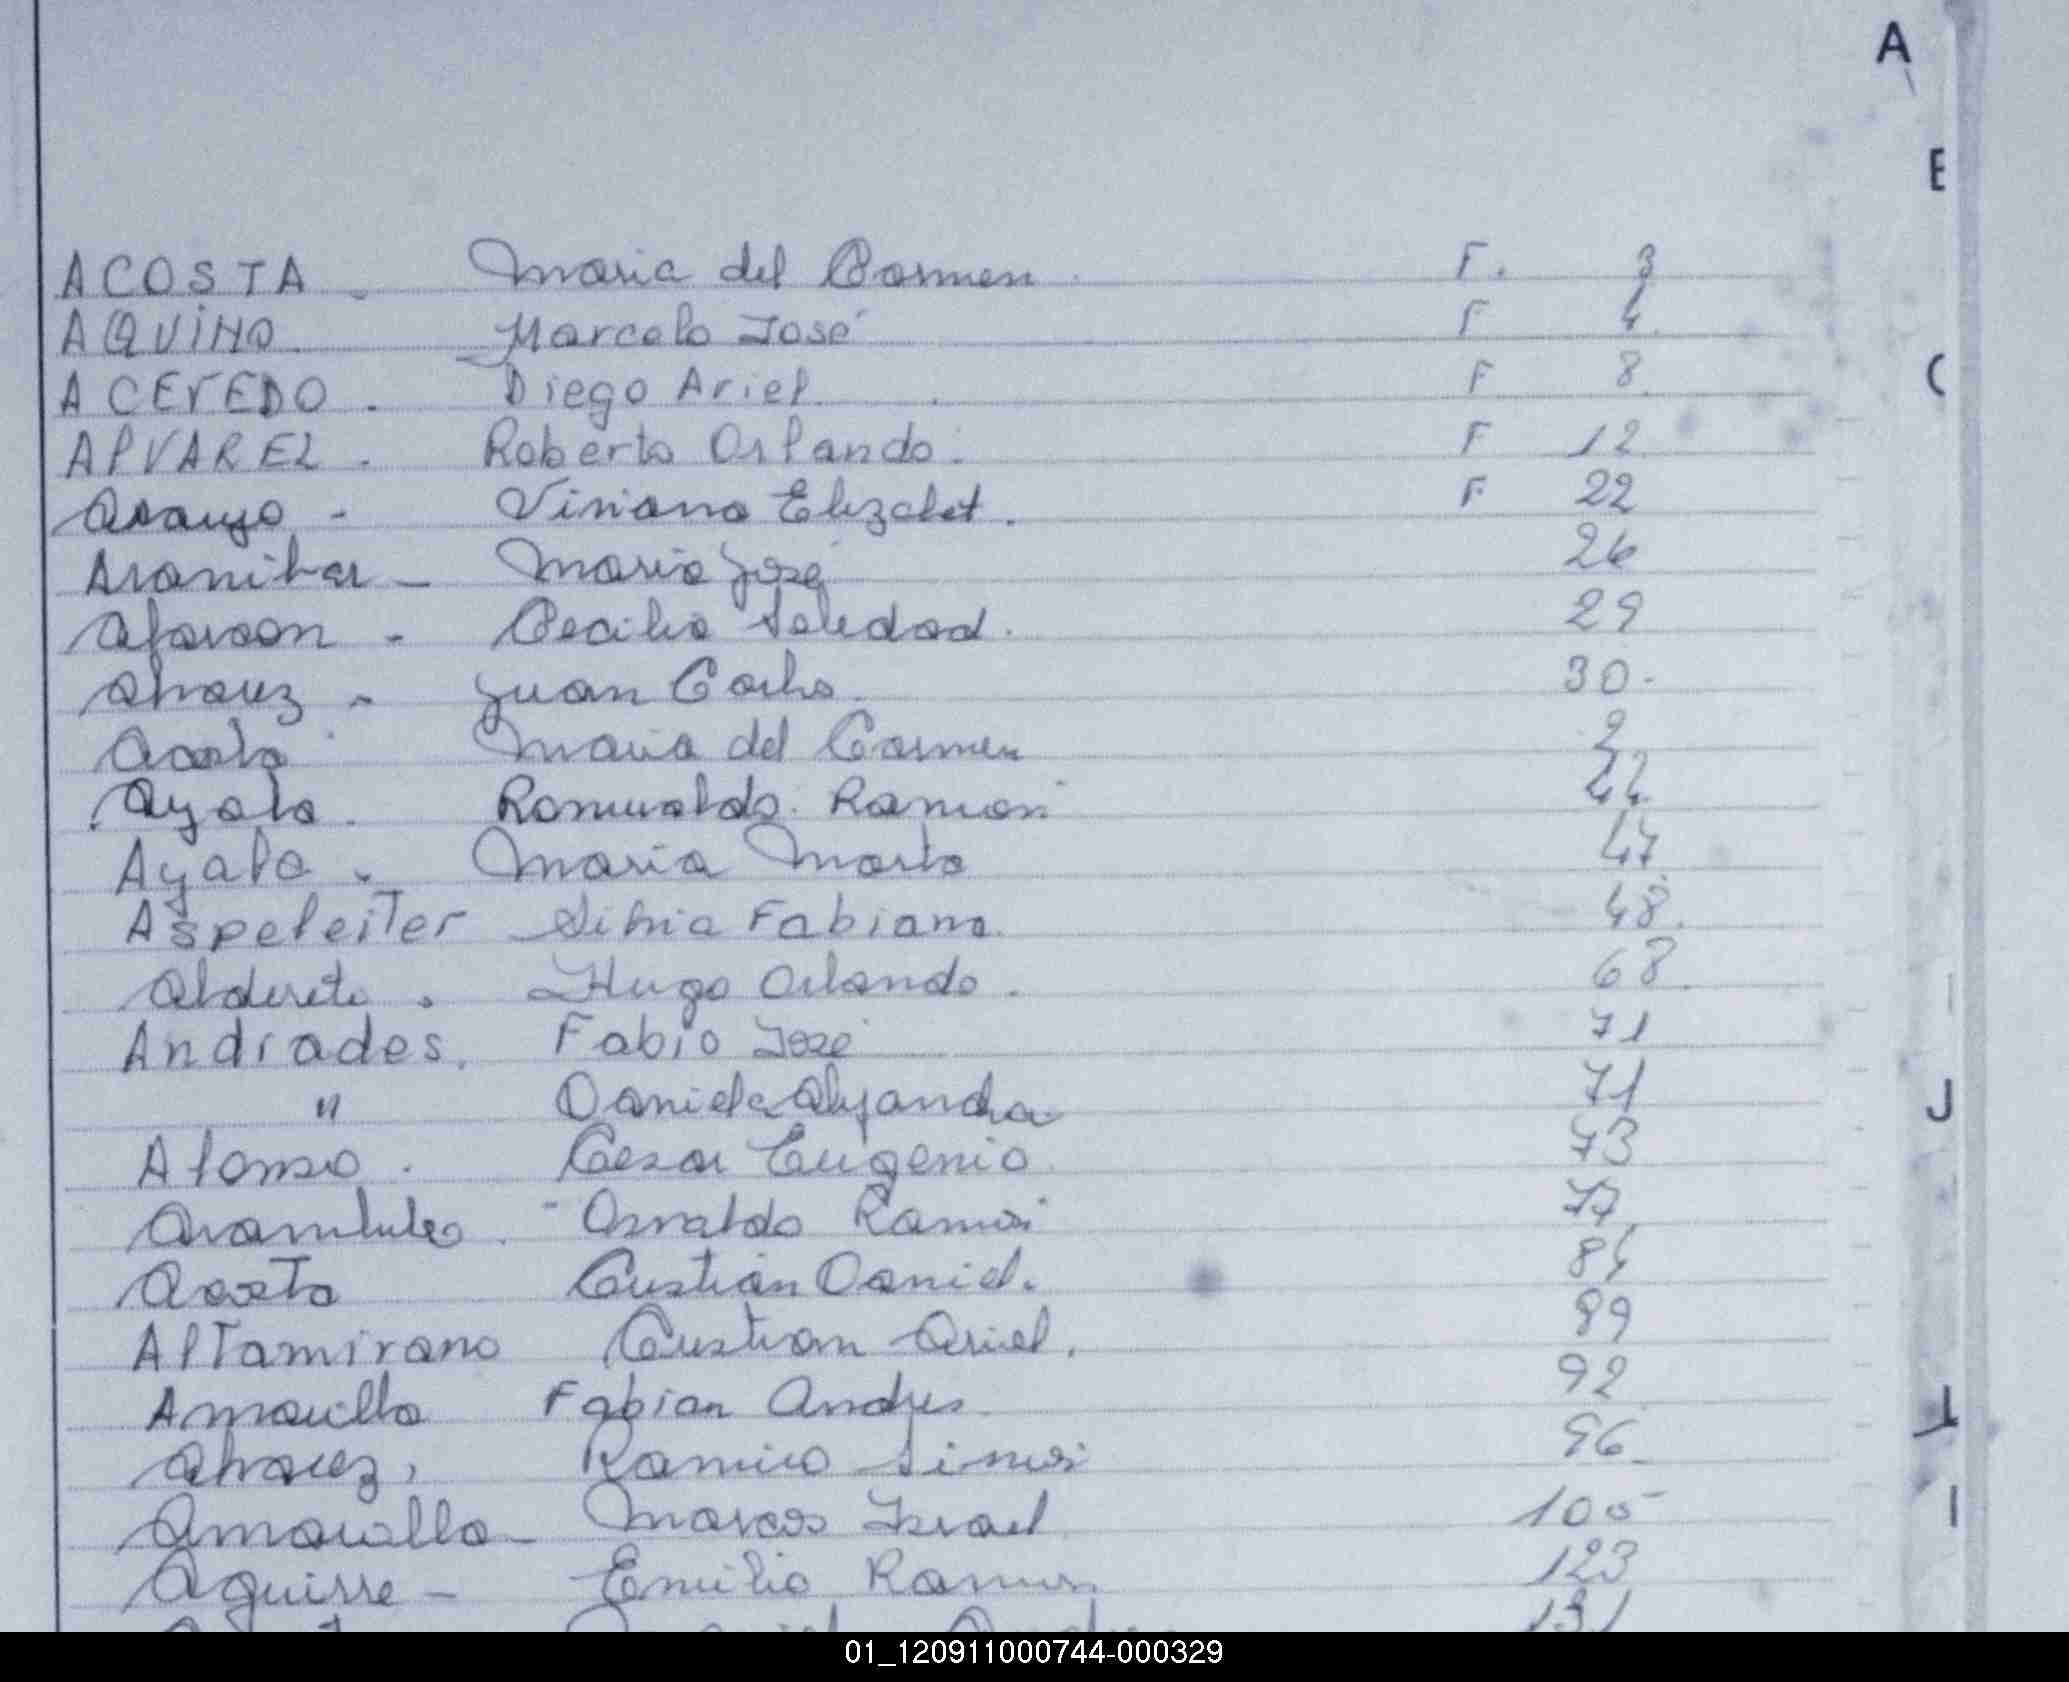 A
B
C
ACOSTA - Maria del Carmen F. 3
AQUiNO Marcelo José F 4
ACEVEDO - Diego Ariel F 8
AlVAREZ - Roberto Orlando. F 12
Araujo - Viviana Elizabet. F 22
Aranibar - Maria José 26
Alarcon - Cecilia Soledad. 29
Alvarez - Juan Carlos 30-
Acosta Maria del Carmen 2
Ayala. Romualdo Ramon 42
Ayala - Maria Marta 47
Aspeleiter Silvia Fabiana 48
Alderete. Hugo Orlando. 68
Andrades. Fabio José 71
" Daniela Alejandra 71
J
Alonso. Cesar Eugenio 73
Arambulo. Osvaldo Ramón 77
Acosta Cristian Daniel. 84
Altamirano Cristian Ariel. 89
Amarilla Fabian Andres 92
Alvarez, Ramiro Simón 96
Amarilla - Marcos Israel 100
Aguirre - Emilio Ramon 123
131
01_120911000744-000329